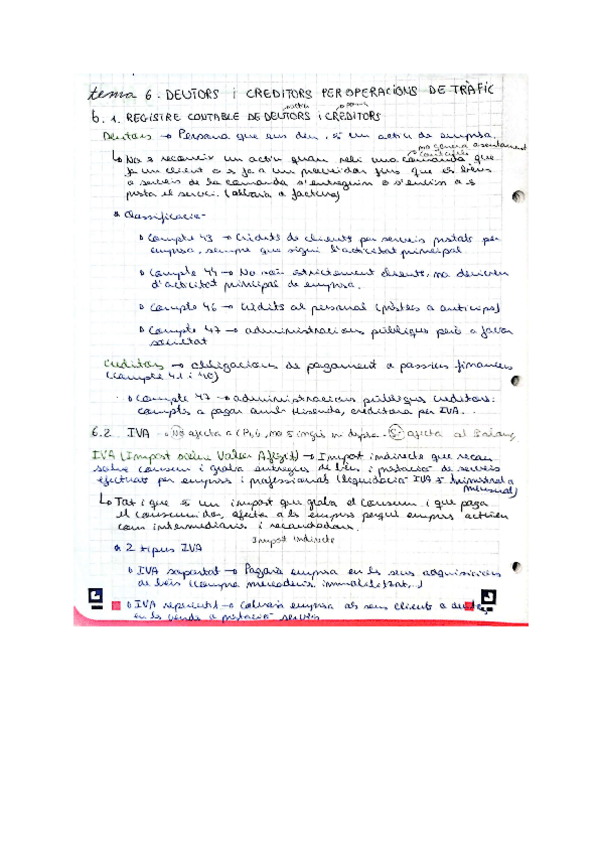 tema 6. DEUTORS i CREDITORS PER OPERACIONS DE TRÀFIC
6.1. REGISTRE CONTABLE DE DEUTORS i CREDITORS
Deutors → Persona que ens deu, és un actiu de empresa.
no genera assentament
↳ No es reconeix un actiu quan rebi una comanda que
fa un client o es fa a un proveïdor fins que els béns
o serveis de la comanda s'entreguin o s'enviïn o es
presta el servei. (albarà o factura)
Classificació
Compte 43 → Crèdits de clients per serveis prestats per
empresa, sempre que sigui l'activitat principal
Compte 44 → No són estrictament clients, no deriven
d'activitat principal de empresa.
Compte 46 → Crèdits al personal (préstecs o anticips)
Compte 47 → administracions públiques però a favor
societat
Creditors → obligacions de pagament o passius financers
(compte 41 i 40)
Compte 47 → administracions públiques creditores:
comptes a pagar amb Hisenda, creditora per IVA.
6.2 IVA - No afecta a (PiG, no és ingrés ni despesa. Sí afecta al Balanç
IVA (Impost sobre Valor Afegit) → Impost indirecte que recau
sobre consum i grava entregues de béns i prestació de serveis
efectuat per empresa i professionals (liquidació IVA és trimestral o
mensual)
↳ Tot i que és un impost que grava el consum i que paga
el consumidor, afecta a les empreses perquè empreses actuen
com intermediaris i recaudadors.
Impost Indirecte
2 tipus IVA
IVA suportat → Pagarà empresa en les seves adquisicions
de béns (compra mercaderies, immobilitzat,..)
IVA repercutit → cobrarà empresa als seus clients o deutors
en les vendes o prestació serveis